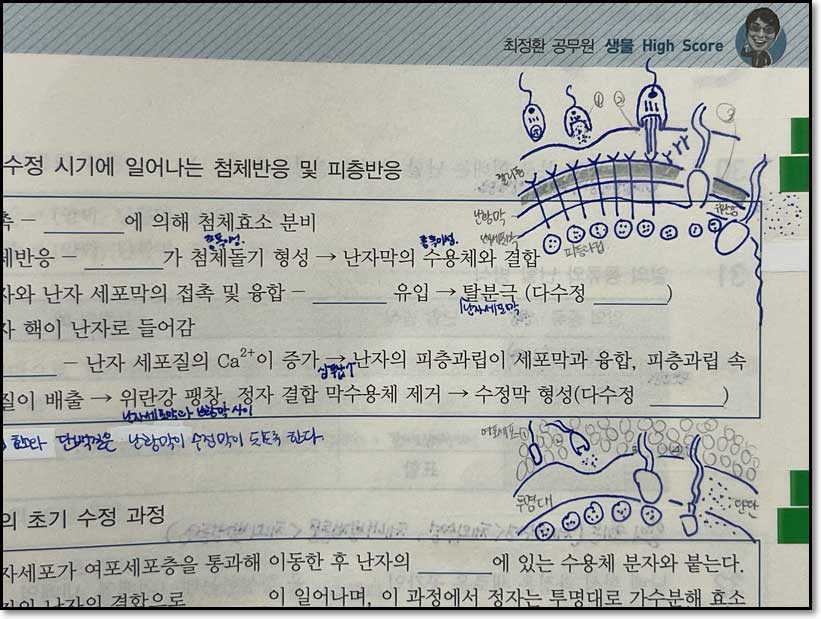 최정환 공무원 생물 High Score
수정 시기에 일어나는 첨체반응 및 피층반응
촉 - ________에 의해 첨체효소 분비
종특이성
종특이성.
체반응 - ________가 첨체돌기 형성 → 난자막의 수용체와 결합
자와 난자 세포막의 접촉 및 융합 - ________ 유입 → 탈분극 (다수정 ________)
난자세포막
자 핵이 난자로 들어감
________ - 난자 세포질의 Ca²⁺이 증가 → 난자의 피층과립이 세포막과 융합, 피층과립 속
삼투압↑
질이 배출 → 위란강 팽창, 정자 결합 막수용체 제거 → 수정막 형성(다수정 ________)
난자세포막과 난황막 사이
한다 단백질은 난황막이 수정막이 되도록 한다.
① ② ③
젤리층
난황막
세포막
피층과립
위란강
여포세포 ① ② ③ ④
투명대
단단
의 초기 수정 과정
자세포가 여포세포층을 통과해 이동한 후 난자의 ________에 있는 수용체 분자와 붙는다.
자와 난자의 결합으로 ________ 이 일어나며, 이 과정에서 정자는 투명대로 가수분해 효소